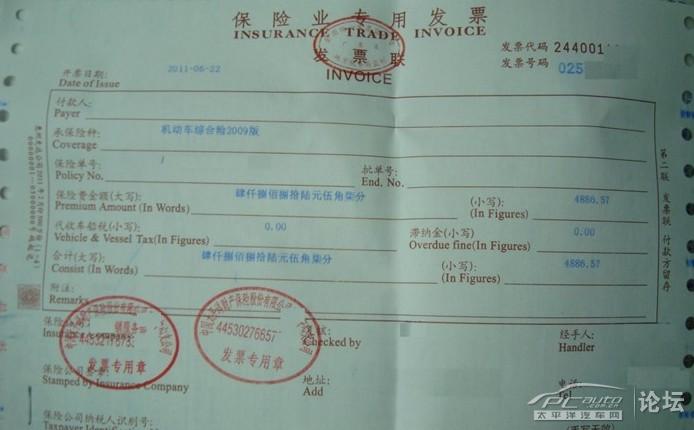 保险业专用发票
INSURANCE TRADE INVOICE
发票联
INVOICE
发票代码 244001
发票号码 025
开票日期: 2011-06-22
Date of Issue
付款人:
Payer
承保险种: 机动车综合险2009版
Coverage
保险单号:
Policy No.
批单号:
End. No.
保险费金额(大写): 肆仟捌佰捌拾陆元伍角柒分 (小写): 4886.57
Premium Amount (In Words) (In Figures)
代收车船税(小写): 0.00 滞纳金(小写): 0.00
Vehicle & Vessel Tax(In Figures) Overdue fine(In Figures)
合计(大写): 肆仟捌佰捌拾陆元伍角柒分 (小写): 4886.57
Consist (In Words) (In Figures)
附注:
Remarks
第二联 发票联 付款方留存
44530276657
发票专用章
发票专用章
复核:
Checked by
经手人:
Handler
保险公司签章:
Stamped by Insurance Company
地址:
Add
电话:
Tel
保险公司纳税人识别号:
(手写无效)
PCauto
.com.cn
太平洋汽车网
论坛